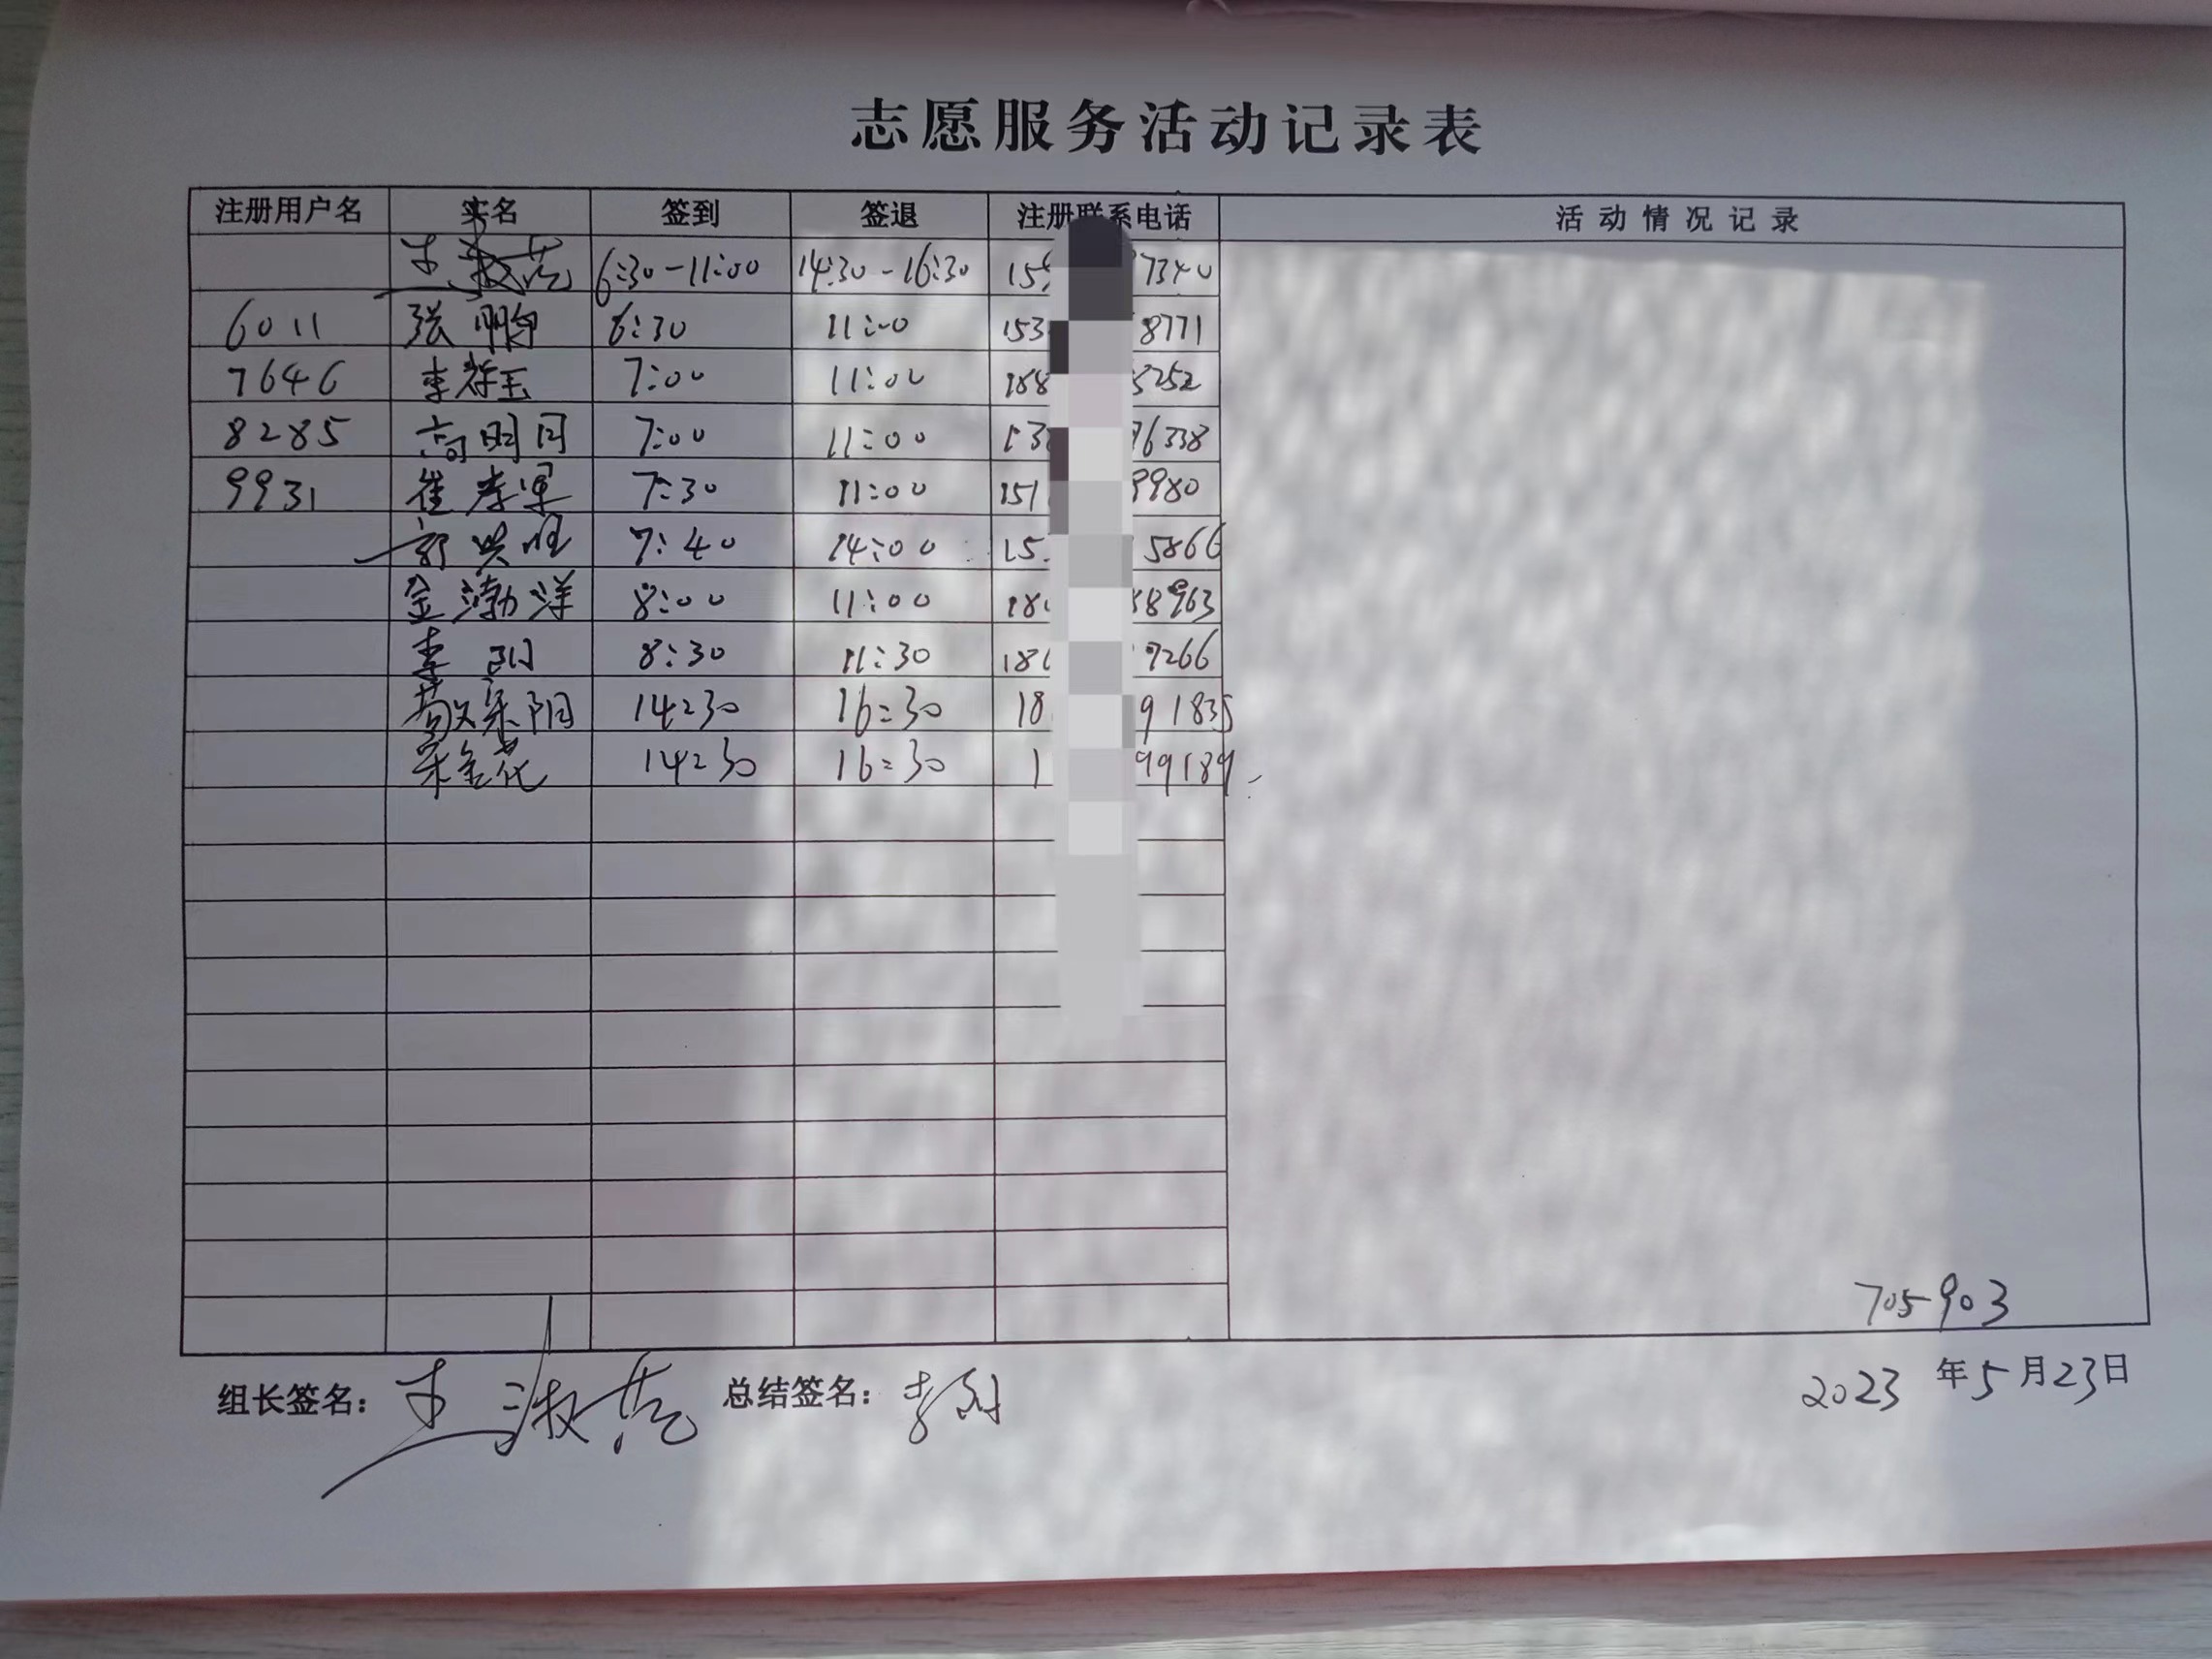 志愿服务活动记录表
注册用户名 实名 签到 签退 注册联系电话 活动情况记录
王淑芬 6:30-11:00 14:30-16:30 15 7340
6011 张鹏 6:30 11:00 153 8771
7646 李 玉 7:00 11:00 188 5252
8285 高明月 7:00 11:00 13 76338
9931 崔孝军 7:30 11:00 151 9980
郭兴旺 7:40 14:00 15 5866
金渤洋 8:00 11:00 18 58963
李 8:30 11:30 18 7266
敬东阳 14:30 16:30 18 91835
宋金花 14:30 16:30 1 99189
705903
组长签名: 王淑芬 总结签名: 李 2023年5月23日